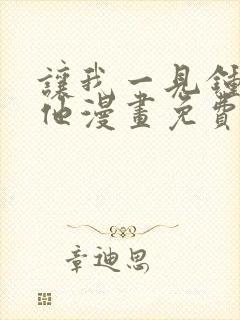 讓我一見鍾
他漫畫免費
章迪思